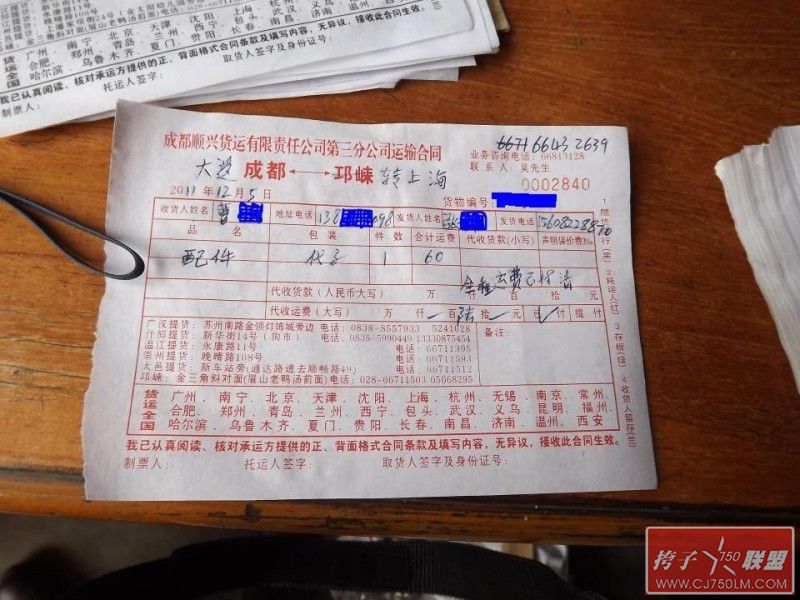 合肥、郑州、青岛、兰州、西宁、包头、武汉、义乌、昆明、福州、
货运全国
哈尔滨、乌鲁木齐、夏门、贵阳、长春、南昌、济南、温州、西安
我已认真阅读、核对承运方提供的正、背面格式合同条款及填写内容，无异议，接收此合同生效。
制票人： 托运人签字： 取货人签字及身份证号：
6671 6643 2639
成都顺兴货运有限责任公司第三分公司运输合同
业务咨询电话：66813128
联系人：吴先生
大邑 成都 ←→ 邛崃 转上海
0002840
2011年12月5日
货物编号：
收货人姓名 曾 地址电话 138 098 发货人姓名 张 发货电话
品名 包装 件数 合计运费 代收货款(小写) 声明保价费
配件 代子 1 60
全程运费已付清
代收货款（人民币大写） 万 仟 百 拾 元
代收运费（大写） 万 仟 百 陆拾 元 提付
广汉提货：苏州南路金领灯饰城旁边 电话：0838-8557933 5241028
备注：
什邡提货：新华街14号（狗市） 电话：0838-5990449 13330875454
温江提货：永康路11号 电话：66711395
崇州提货：晚晴路108号 电话：66711593
大邑提货：新车站旁(通达路进去顺畅路49) 电话：66711512
邛崃：金三角斜对面(眉山老鸭汤前面)电话：028-66711503 65668295
货运全国
广州、南宁、北京、天津、沈阳、上海、杭州、无锡、南京、常州、
合肥、郑州、青岛、兰州、西宁、包头、武汉、义乌、昆明、福州、
哈尔滨、乌鲁木齐、夏门、贵阳、长春、南昌、济南、温州、西安
我已认真阅读、核对承运方提供的正、背面格式合同条款及填写内容，无异议，接收此合同生效。
制票人： 托运人签字： 取货人签字及身份证号：
1随货同行(黑) 2托运人(红) 3存根(绿) 4收货人留存(兰)
挎子 750 联盟
WWW.CJ750LM.COM